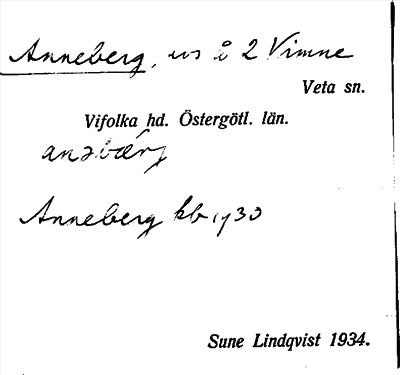 Anneberg, uvs å 2 Vimne
Veta sn.
Vifolka hd. Östergötl. län.
anəbærj
Anneberg kb 1730
Sune Lindqvist 1934.